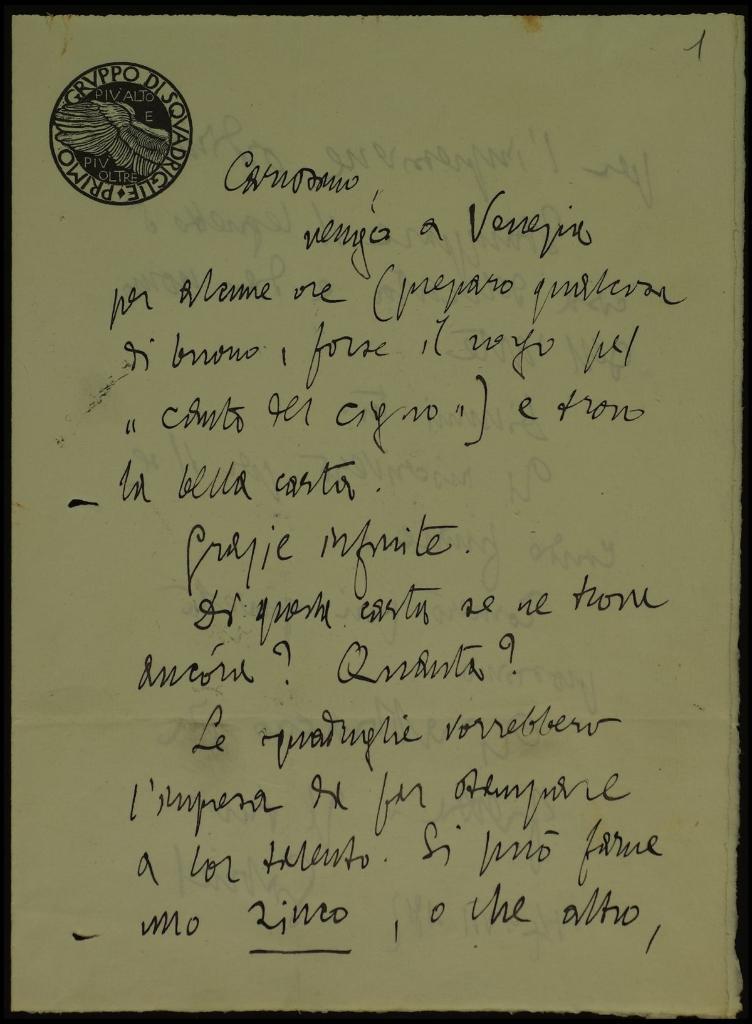 1
PRIMO GRVPPO DI SQVADRIGLIE
PIV ALTO
E
PIV
OLTRE
Carissimo,
vengo a Venezia
per alcune ore (preparo qualcosa
di buono, forse il volo pel
"canto del cigno") e trovo
la bella carta.
Grazie infinite.
Di questa carta se ne trova
ancóra? Quanta?
Le squadriglie vorrebbero
l'impresa da far stampare
a lor talento. Si può farne
uno zinco, o che altro,